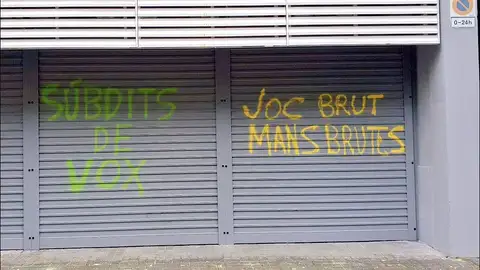 SÚBDITS
DE
VOX
JOC BRUT
MANS BRUTES
0-24h